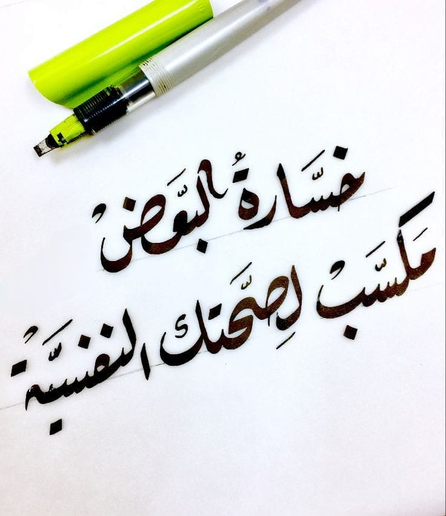 خسَّارةُ البَّعَضْ
مَكسَّبْ لِصَّحَتك النفسيَّة